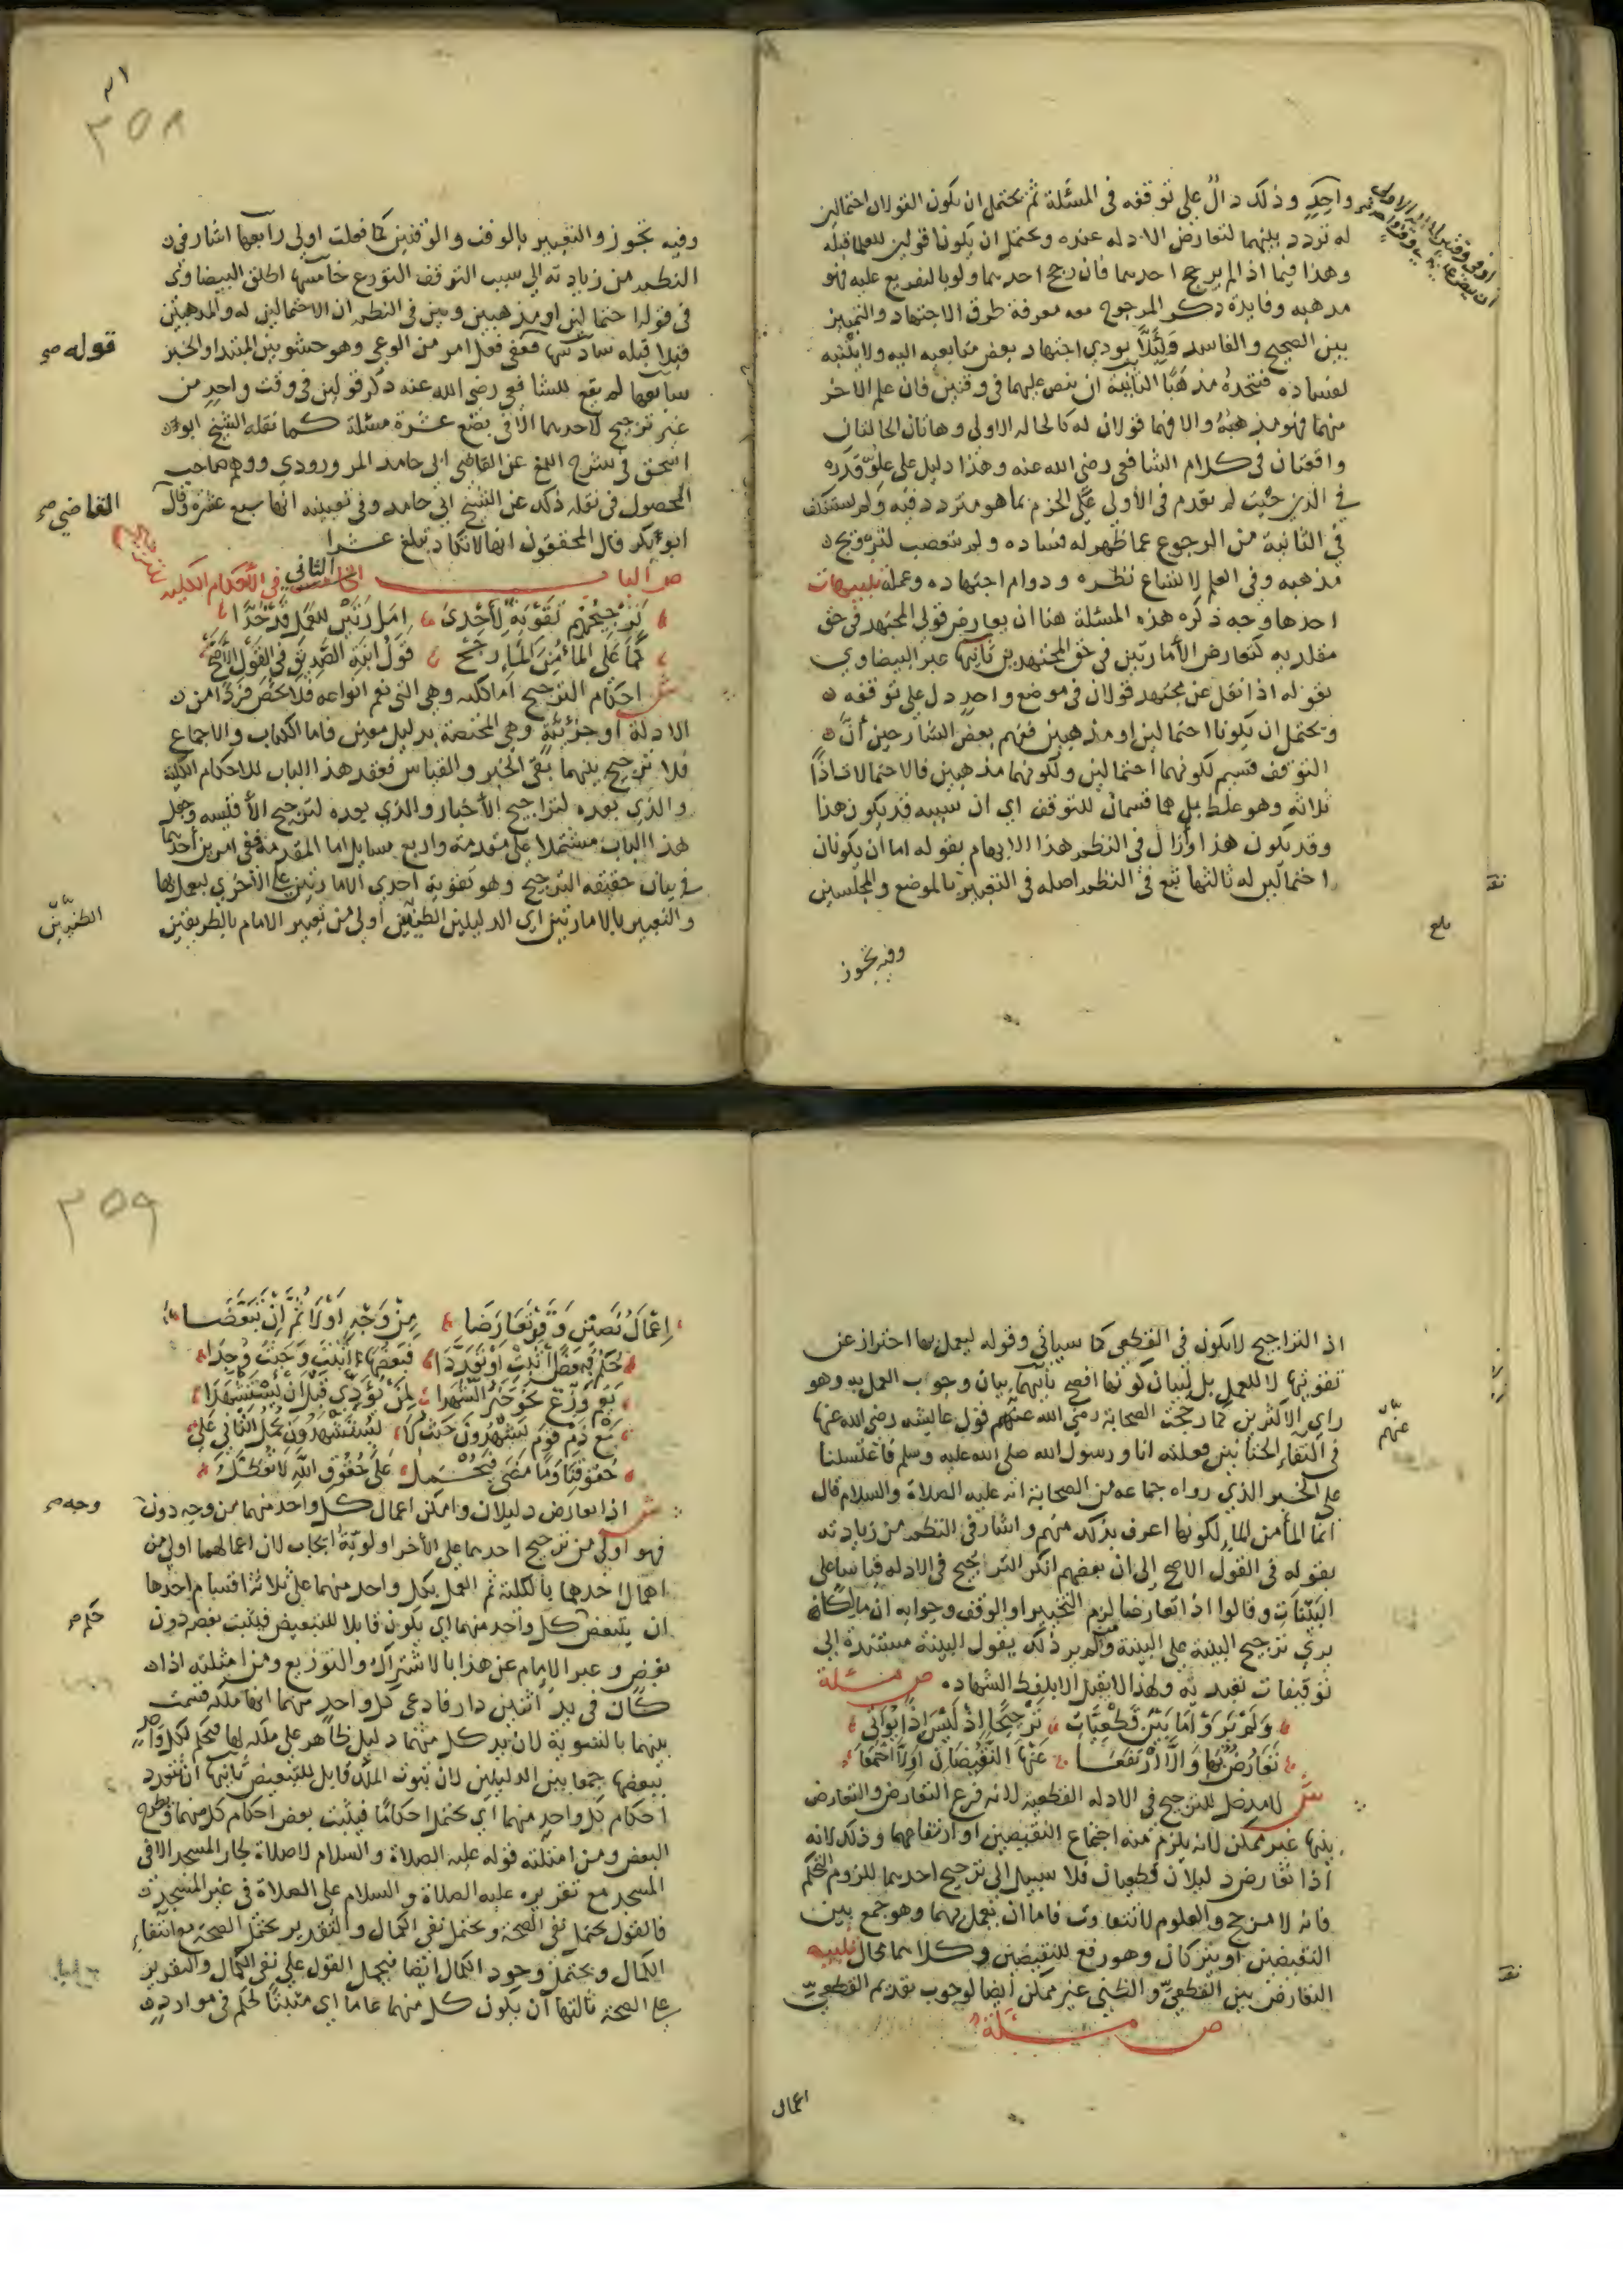 واحد وذلك دال على توقفه في المسئلة ثم يحتمل ان يكون القولان احتمالين
له تردد بينهما لتعارض الادله عنده ويحتمل ان يكونا قولين للعلما قبله
وهذا فيما اذا لم يرجح احدىما فان رجح احدىما ولو بالتفريع عليه فهو
مذهبه وفايدة ذكر المرجوح معه معرفة طرق الاجتهاد والتمييز
بين الصحيح والفاسد ولئلا يودي اجتهاد بعض متابعيه اليه ولا ينتبه
لفساده فيتخذه مذهبا الثانية ان ينص عليهما في وقتين فان علم الاخر
منهما فهو مذهبه والا فهما قولان له كالحاله الاولى وهاتان الحالتان
واقعتان في كلام الشافعي رضي الله عنه وهذا دليل على علو قدره
في الدين حيث لم يقدم في الاولى على الجزم بما هو متردد فيه ولم يستنكف
في الثانية من الرجوع عما ظهر له فساده ولم يتعصب لترويج
مذهبه وفي العلم لاتساع نظره ودوام اجتهاده وعمله تنبيهات
احدها وجه ذكره هذه المسئلة هنا ان تعارض قولي المجتهد في حق
مقلديه كتعارض الأمارتين في حق المجتهدين ثانيها عبر البيضاوي
بقوله اذا نقل عن مجتهد قولان في موضع واحد دل على توقفه
ويحتمل ان يكونا احتمالين او مذهبين ففهم بعض الشارحين أن
التوقف قسيم لكونهما احتمالين ولكونهما مذهبين فالاحتمالات اذا
ثلاثة وهو غلط بل هما قسمان للتوقف اي ان سببه قد يكون هذا
وقد يكون هذا وأزال في النظم هذا الايهام بقوله اما ان يكونان
احتمالين له ثالثها تبع في النظم اصله في التعبير بالموضع والمجلسين
بلغ
وفيه تجوز
٣٥٨
وفيه تجوز والتعبير بالوقف والوقتين كما فعلت اولى رابعها اشار في
النظم من زيادته الى سبب التوقف التورع خامسها اطلق البيضاوي
في قوله احتمالين او مذهبين وبين في النظم ان الاحتمالين له والمذهبين
قيلا قبله سادسها فعي فعل امر من الوعي وهو حشو بين المبتدا والخبر
سابعها لم يقع للشافعي رضي الله عنه ذكر قولين في وقت واحد من
غير ترجيح لاحدىما الا في بضع عشرة مسئلة كما نقله الشيخ ابو
اسحق في شرح اللمع عن القاضي ابي حامد المرورودي ووهم صاحب
المحصول في نقله ذلك عن الشيخ ابي حامد وفي تعيينه انها سبع عشرة وقال
ابو بكر قال المحققون انها لا تكاد تبلغ عشرا
قوله صح
القاضي صح
ص الباب الثاني في الأحكام الكلية
ترجيحهم تقوية لأحدى امارتين للعمل قد حدا
كما على الما من الماء رجح قول ابنة الصديق في القول الأصح
ش احكام الترجيح اما كليه وهي التي تعم انواعه فلا تخص فردا من
الادلة أو جزئية وهي المختصة بدليل معين فاما الكتاب والاجماع
فلا ترجيح بينهما بقي الخبر والقياس فعقد هذا الباب للاحكام الكلية
والذي بعده لتراجيح الأخبار والذي بعده لترجيح الأقيسه وجعل
هذا الباب مشتملا على مقدمة واربع مسايل اما المقدمة ففي امرين أحدىما
في بيان حقيقه الترجيح وهو تقوية احدى الامارتين على الأخرى ليعمل بها
والتعبير بالامارتين اي الدليلين الظنيين أولى من تعبير الامام بالطريقين
الظنيين
اذ التراجيح لا تكون في القطعي كما سياتي وقوله ليعمل بها احتراز عن
تقويتها لا للعمل بل لبيان كونها افصح ثانيهما بيان وجوب العمل به وهو
راي الاكثرين كما رجحت الصحابة رضي الله عنهم قول عايشه رضي الله عنها
في التقاء الختانين فعلته انا ورسول الله صلى الله عليه وسلم فاغتسلنا
على الخبر الذي رواه جماعه من الصحابة انه عليه الصلاة والسلام قال
انما الما من الما لكونها اعرف بذلك منهم واشار في النظم من زيادته
بقوله في القول الاصح إلى ان بعضهم انكر الترجيح في الادله قياسا على
البينات وقالوا اذا تعارضا لزم التخيير او الوقف وجوابه ان مالكا
يرى ترجيح البينة على البينة ومن لم ير ذلك يقول البينة مستندة إلى
توقيفات تعبديه ولهذا لا يقبل الا بلفظ الشهاده ص مسئلة
عنهم
ولم يروا ما بين قطعيات ترجيحا إذ ليس إذا بواتي
تعارض بها وإلا ارتفعا عنها النقيضان او لا اجتمعا
ش لا مدخل للترجيح في الادله القطعية لانه فرع التعارض والتعارض
بينها غير ممكن لانه يلزم منه اجتماع النقيضين او ارتفاعهما وذلك لانه
اذا تعارض دليلان قطعيان فلا سبيل الى ترجيح احدىما للزوم التحكم
فانه لا مرجح والعلوم لا تتفاوت فاما ان يعمل بهما وهو جمع بين
النقيضين او يتركان وهو رفع للنقيضين وكلاىما محال تنبيه
التعارض بين القطعي والظني غير ممكن أيضا لوجوب تقديم القطعي
ص مسئلة
اعمال
٣٥٩
إعمال نصين وقد تعارضا من وجه أولا ثم إن تبعضا
حكم فبعضا أثبت او تعددا فبعضها اثبت وحيث وجدا
بعم وزع نحو خير الشهدا من يؤدي قبل أن يستشهدا
مع ذم قوم يشهدون حيث لا يستشهدون نحمل الثاني على
حقوقنا وما مضى فيحمل على حقوق الله لا تعطل
ش اذا تعارض دليلان وامكن اعمال كل واحد منهما من وجه دون
فهو أولى من ترجيح احدىما على الأخر اولوية ايجاب لان اعمالهما اولى من
اهمال احدهما بالكلية ثم العمل بكل واحد منهما على ثلاثة اقسام احدها
ان يتبعض كل واحد منهما اي يكون قابلا للتبعيض فيثبت بعض دون
بعض وعبر الإمام عن هذا بالاشتراك والتوزيع ومن امثلته اذا
كان في يد اثنين دار فادعى كل واحد منهما انها ملكه قسمت
بينهما بالتسوية لان يد كل منهما دليل ظاهر على ملكه لها فيحكم لكل واحد
ببعضها جمعا بين الدليلين لان ثبوت الملك قابل للتبعيض ثانيها ان تتعدد
احكام كل واحد منهما اي يحتمل احكاما فيثبت بعض احكام كل منهما ويطرح
البعض ومن امثلته قوله عليه الصلاة والسلام لا صلاة لجار المسجد الا في
المسجد مع تقريره عليه الصلاة والسلام على الصلاة في غير المسجد
فالقول يحتمل نفي الصحة ويحتمل نفي الكمال والتقدير يحتمل الصحة مع انتفاء
الكمال ويحتمل وجود الكمال ايضا فيحمل القول على نفي الكمال والتقرير
على الصحة ثالثها أن يكون كل منهما عاما اي مثبتا لحكم في موارد
وجه صح
حكم صح